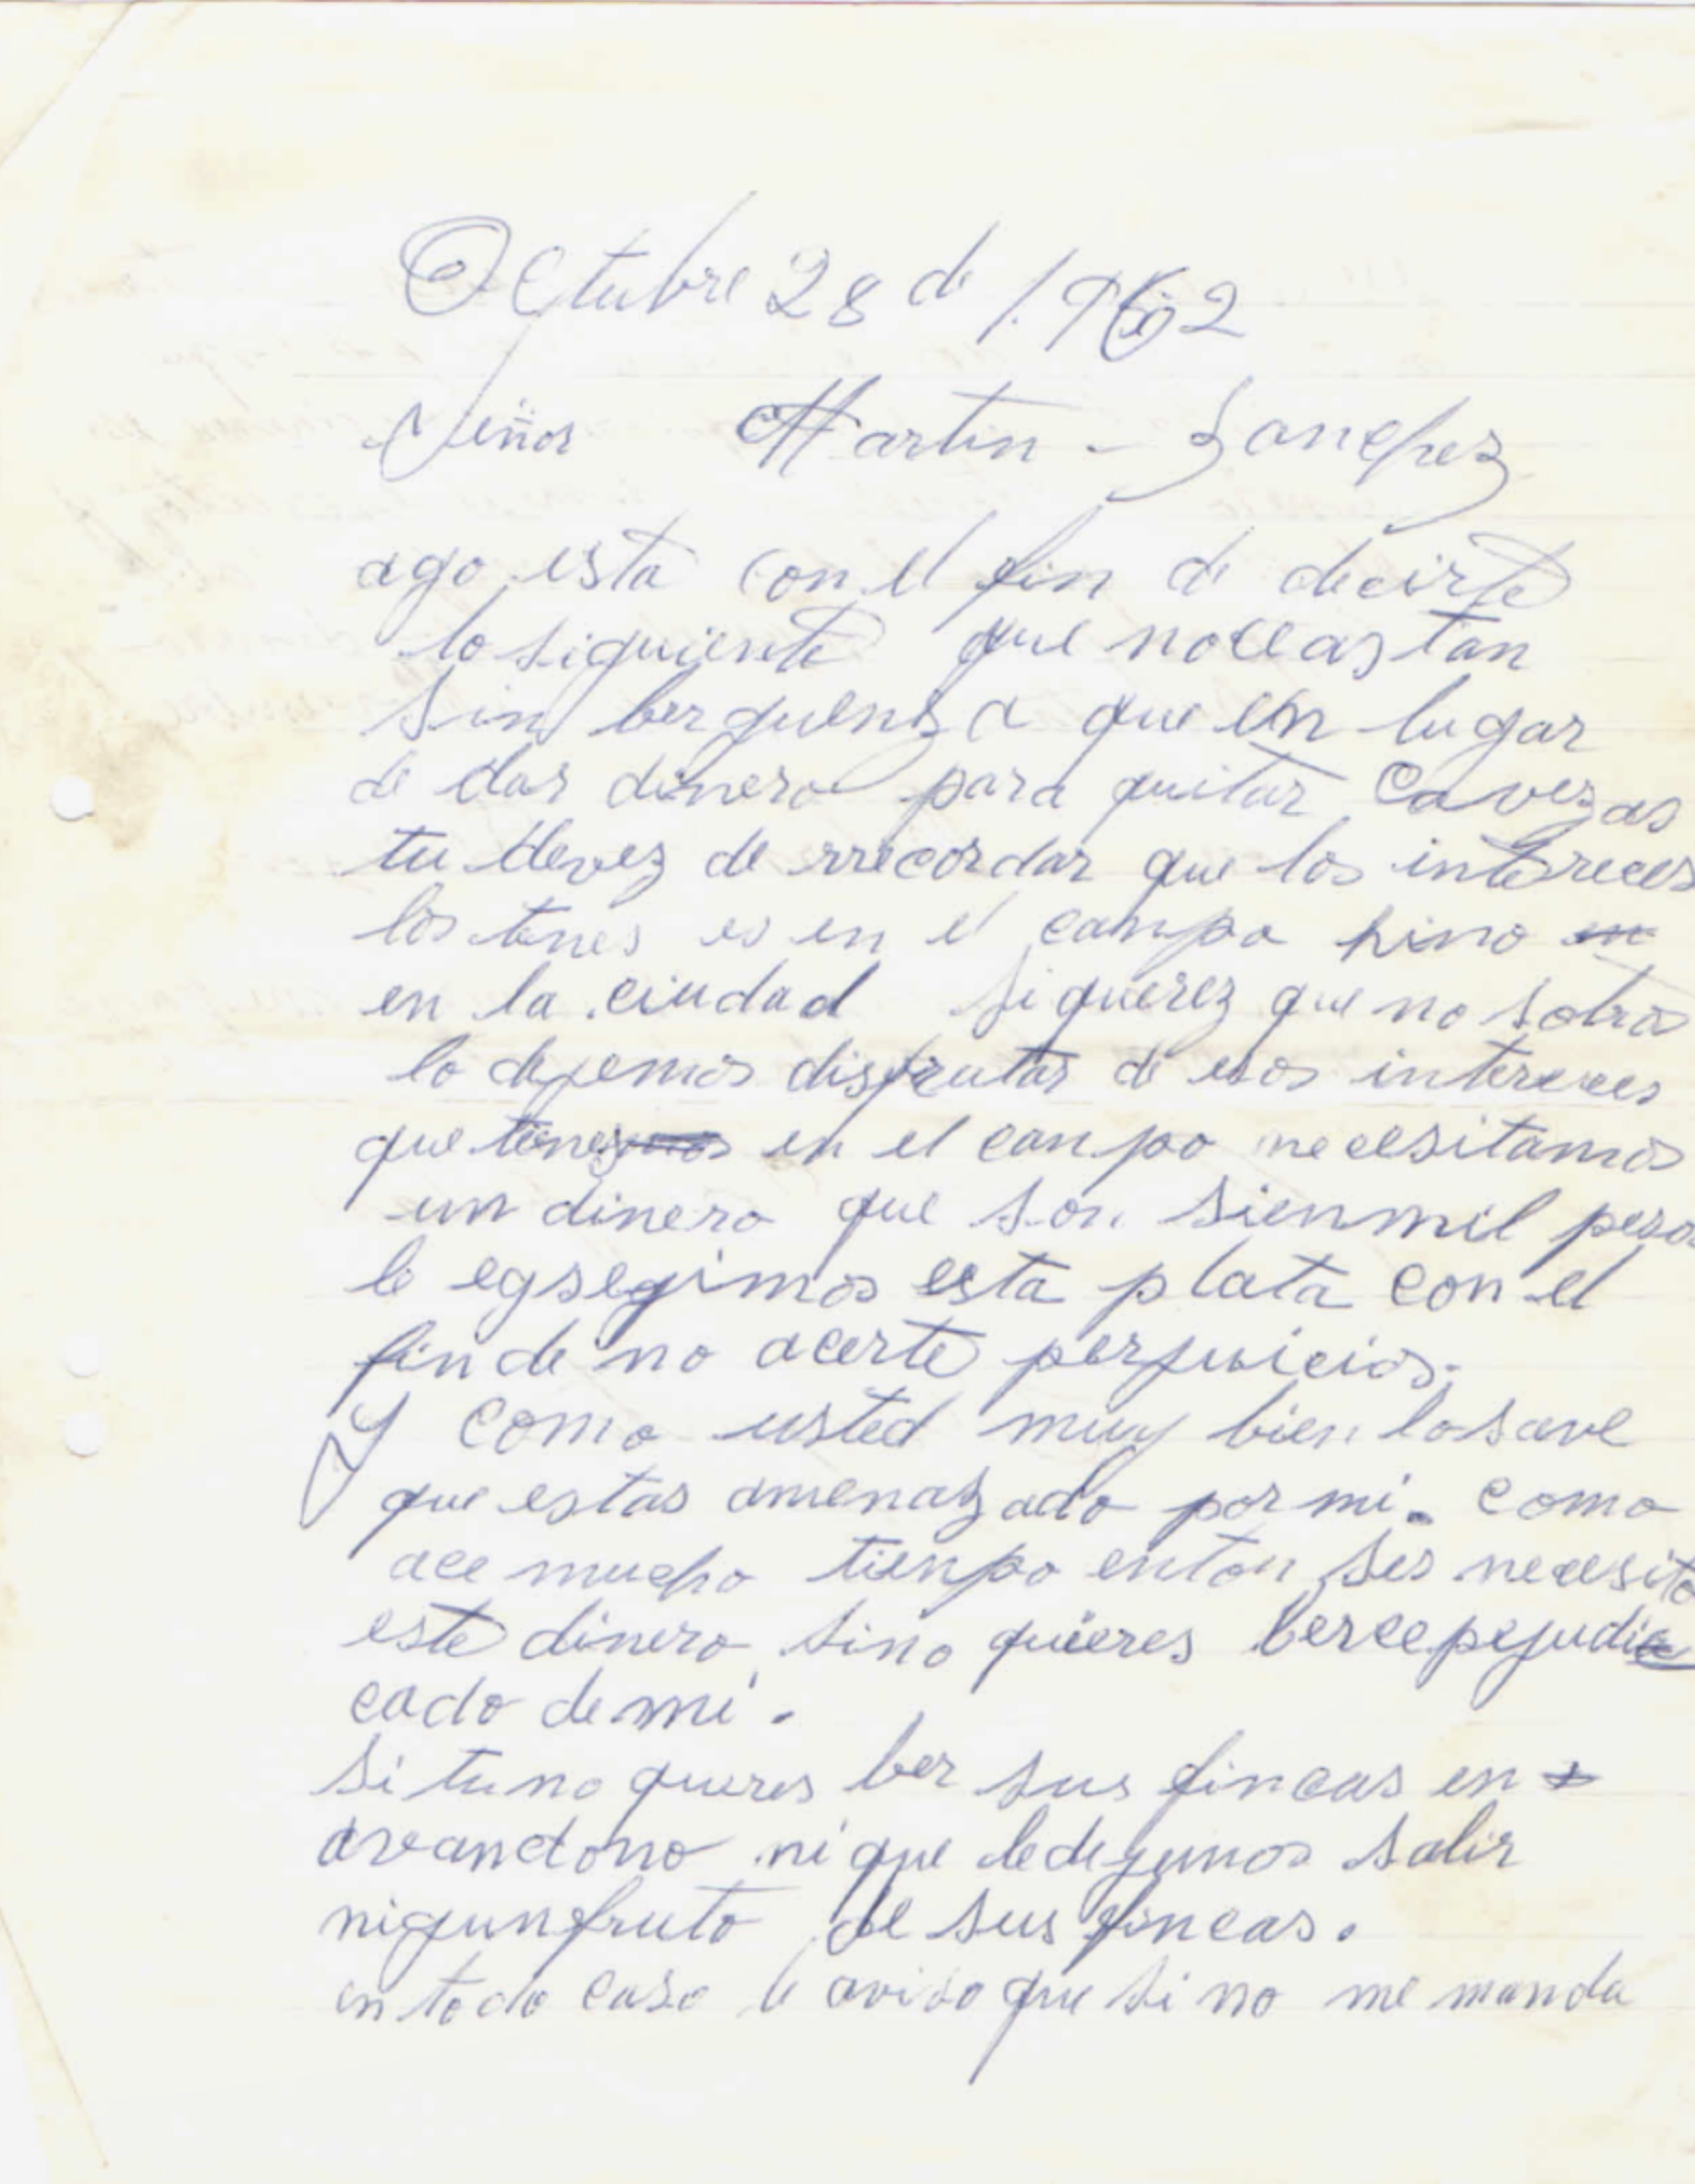 Octubre 28 de 1.962
Señor Martin - Sanchez
ago esta con el fin de decirte
lo siguiente que no ceas tan
sin berguensa que en lugar
de dar dinero para quitar cavezas
tu devez de rrecordar que los intereces
los tenes es en el campo hino
en la ciudad si querez que no sotros
lo dejemos disfrutar de esos intereces
que tienes en el canpo necesitamos
un dinero que son sienmil pesos
le egsegimos esta plata con el
fin de no acerte perjuicios.
Y como usted muy bien lo save
que estas amenaszado por mi. como
ace mucho tienpo enton ses necesito
este dinero, sino quieres berce pejudi
cado de mi.
Si tu no queres ber sus fincas en
avandono ni que le dejemos salir
nigun fruto de sus fincas.
en todo caso le aviso que si no me manda